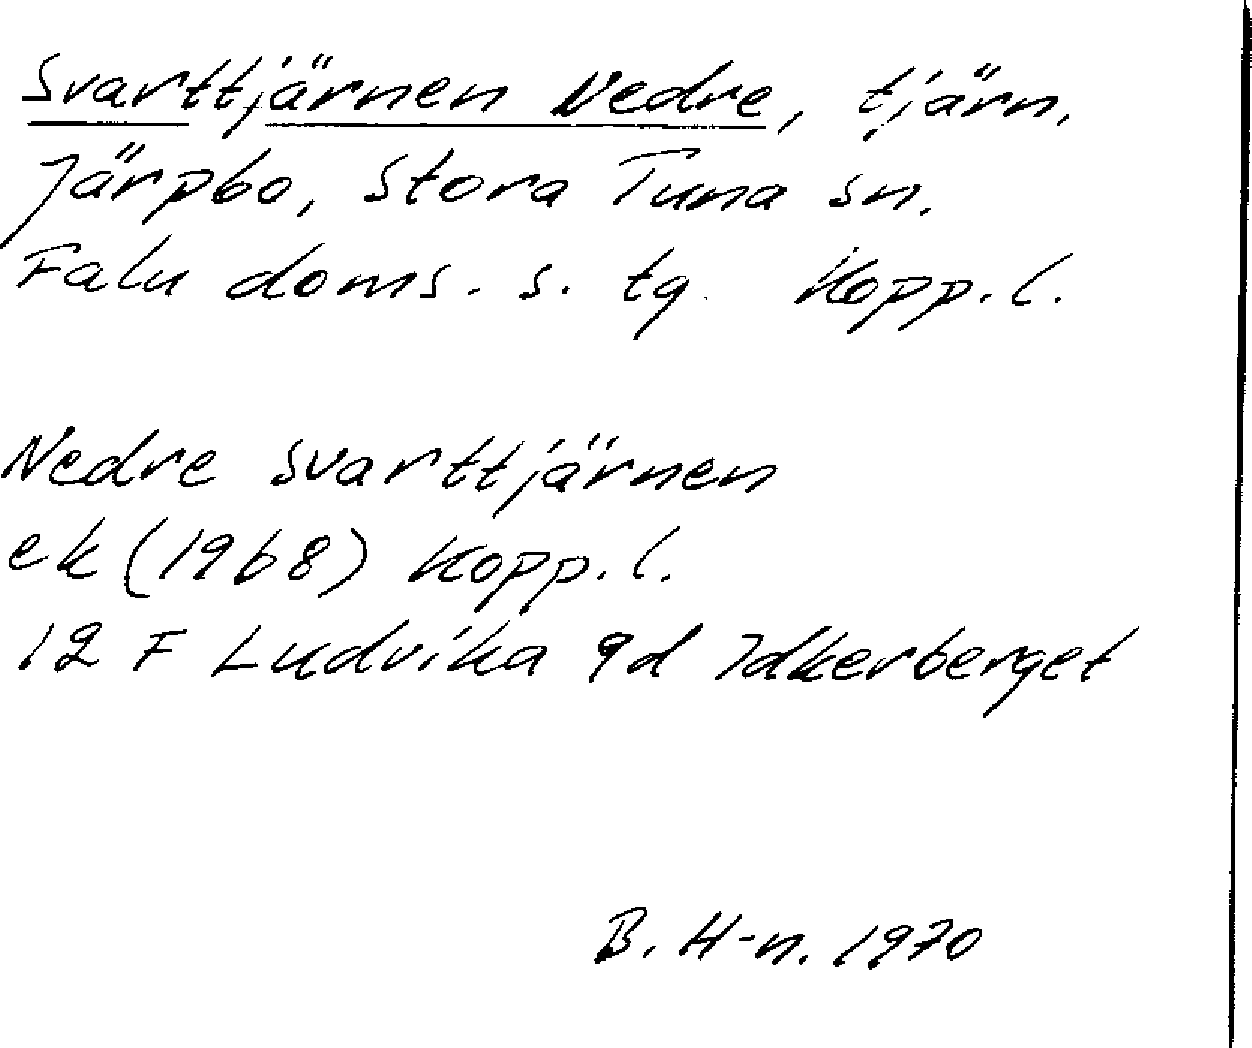 Svarttjärnen Nedre, tjärn,
Järpbo, Stora Tuna sn.
Falu doms. s. tg. Kopp. l.
Nedre Svarttjärnen
ek (1968) Kopp. l.
12 F Ludvika 9d Idkerberget
B. H-n. 1970